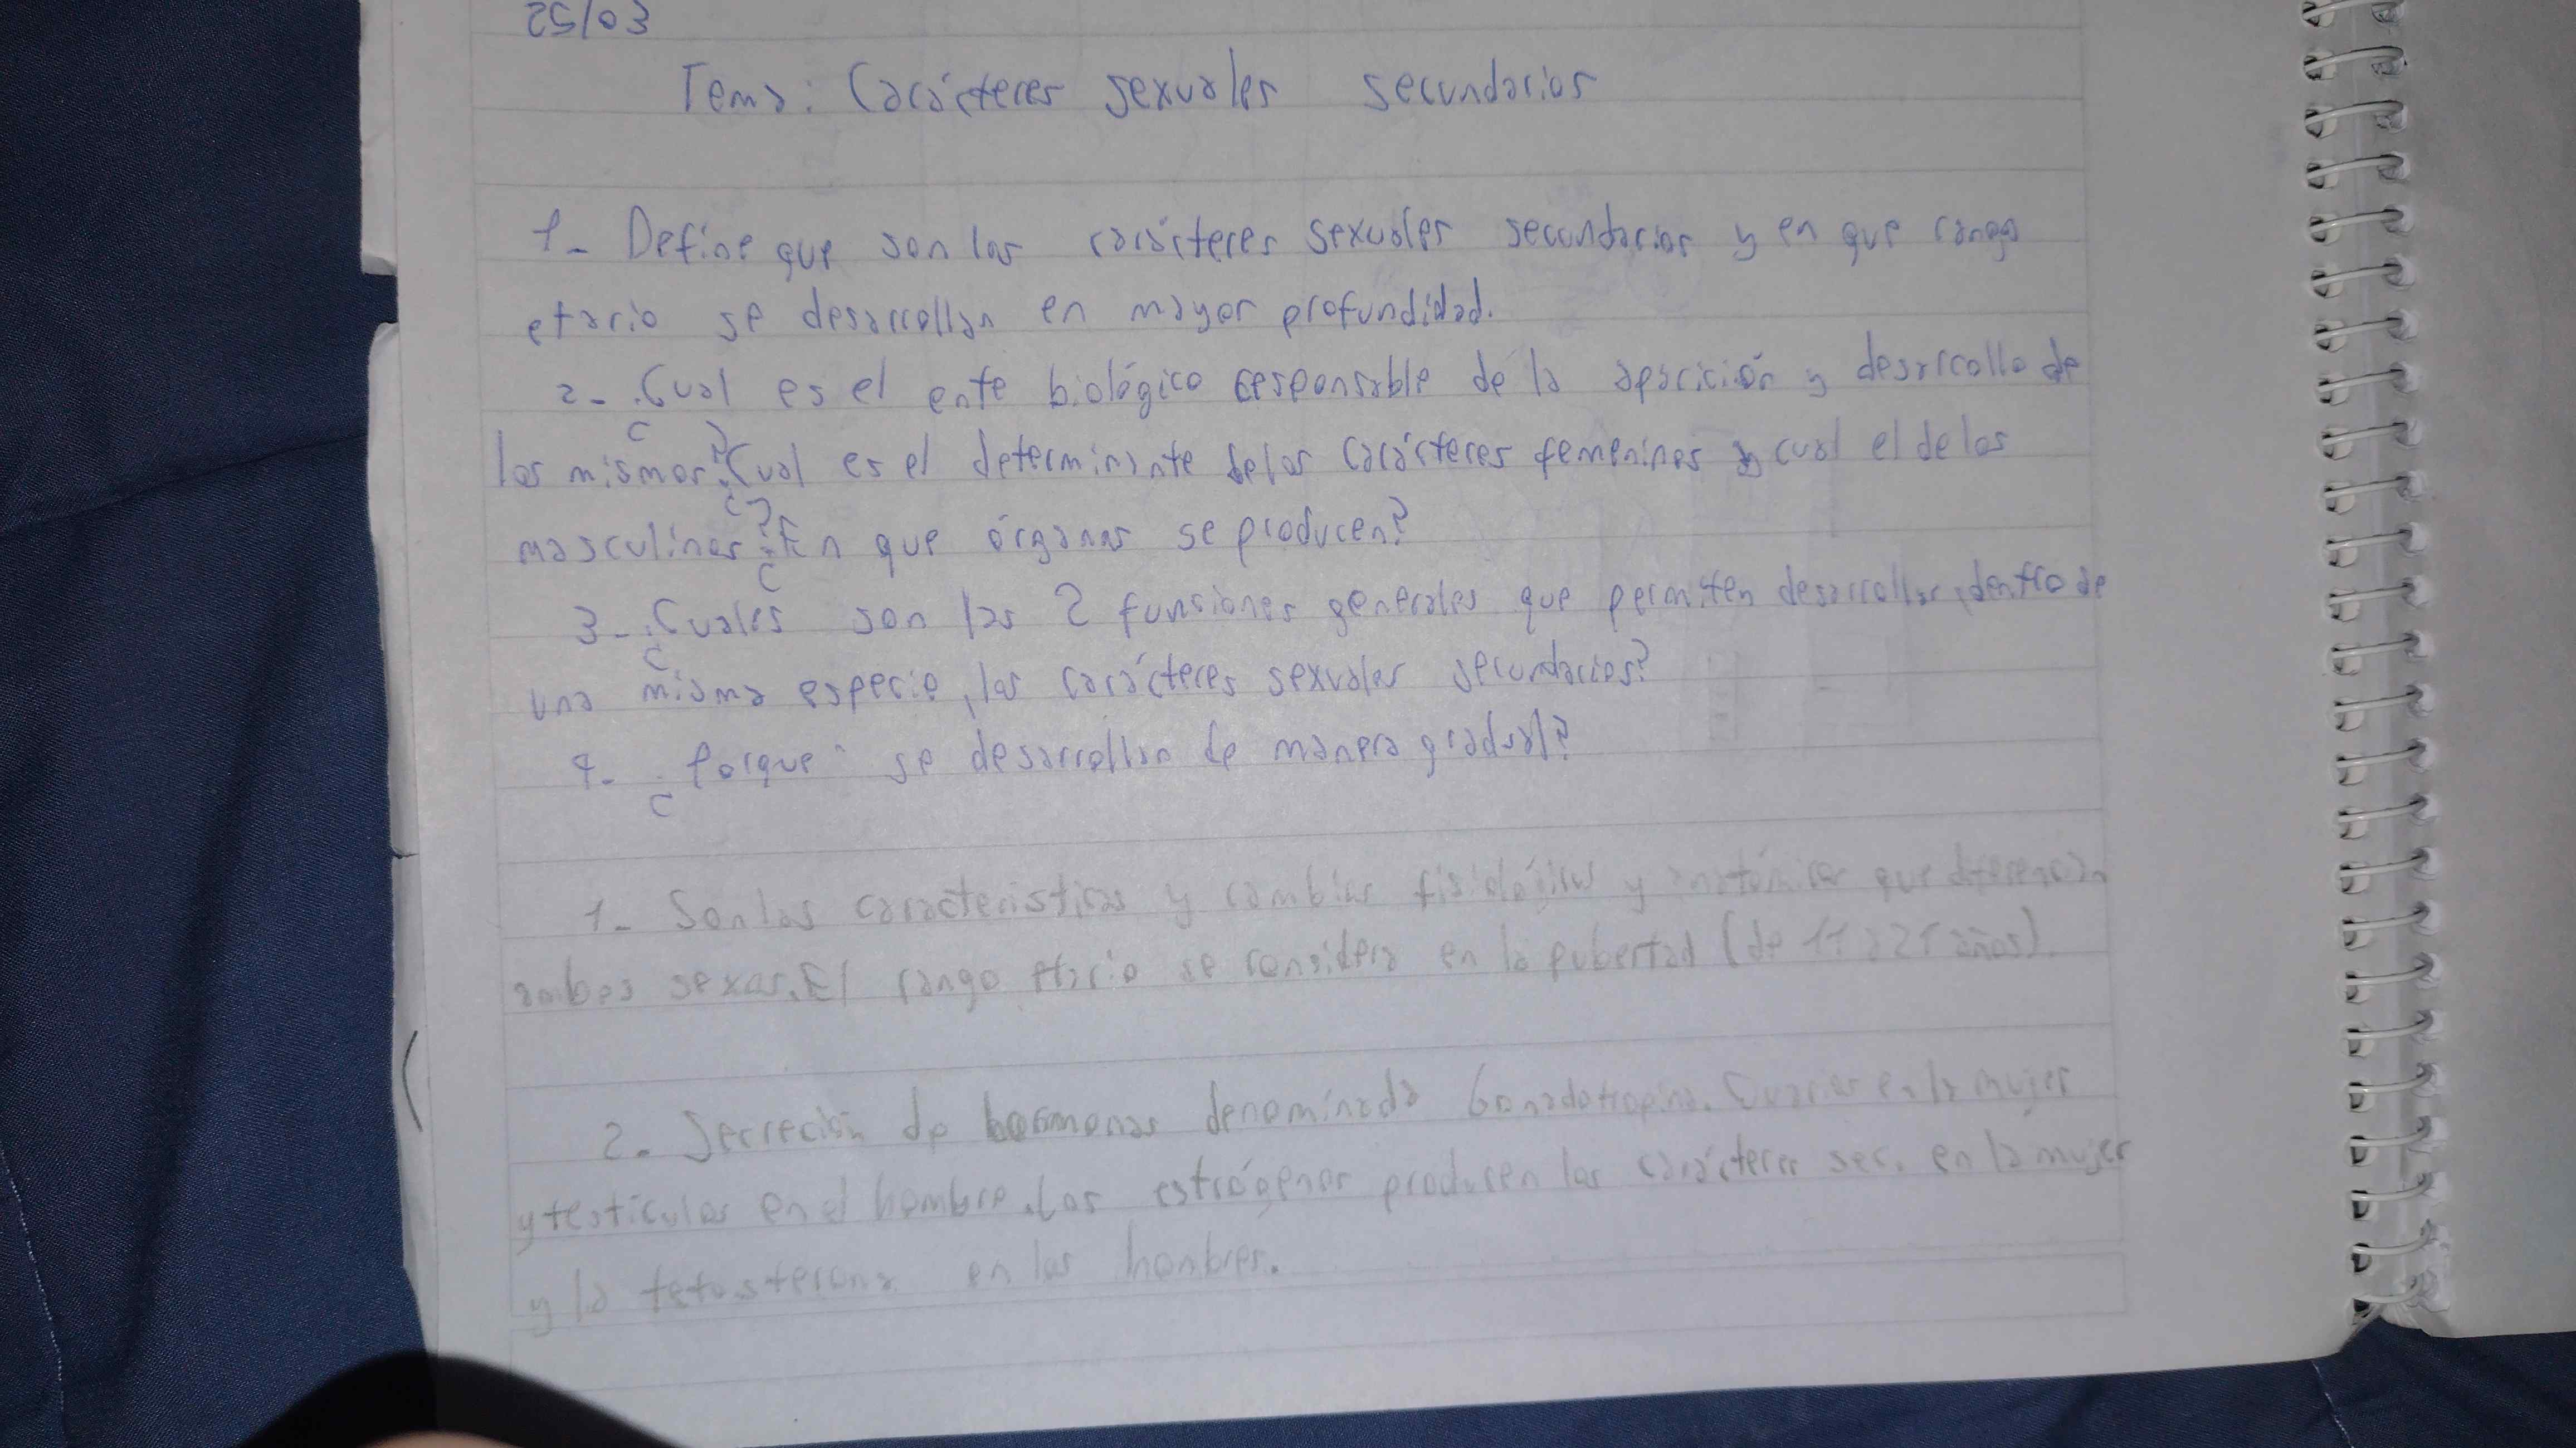 25/03
Tema: Carácteres sexuales secundarios
1- Define que son los carácteres sexuales secundarios y en que rango
etario se desarrollan en mayor profundidad.
2- ¿Cual es el ente biológico responsable de la aparición y desarrollo de
los mismos? ¿Cual es el determinante de los carácteres femeninos y cual el de los
masculinos? ¿En que órganos se producen?
3- ¿Cuales son las 2 funciones generales que permiten desarrollar, dentro de
una misma especie, los carácteres sexuales secundarios?
4- ¿Porque se desarrollan de manera gradual?
1- Son las caracteristicas y cambios fisiológicos y anatómicos que diferencian
ambos sexos. El rango etario se considera en la pubertad (de 11 a 21 años).
2- Secreción de hormonas denominada Gonadotropina. Ovarios en la mujer
y testiculos en el hombre. Los estrógenos producen los carácteres sec. en la mujer
y la tetosterona en los hombres.